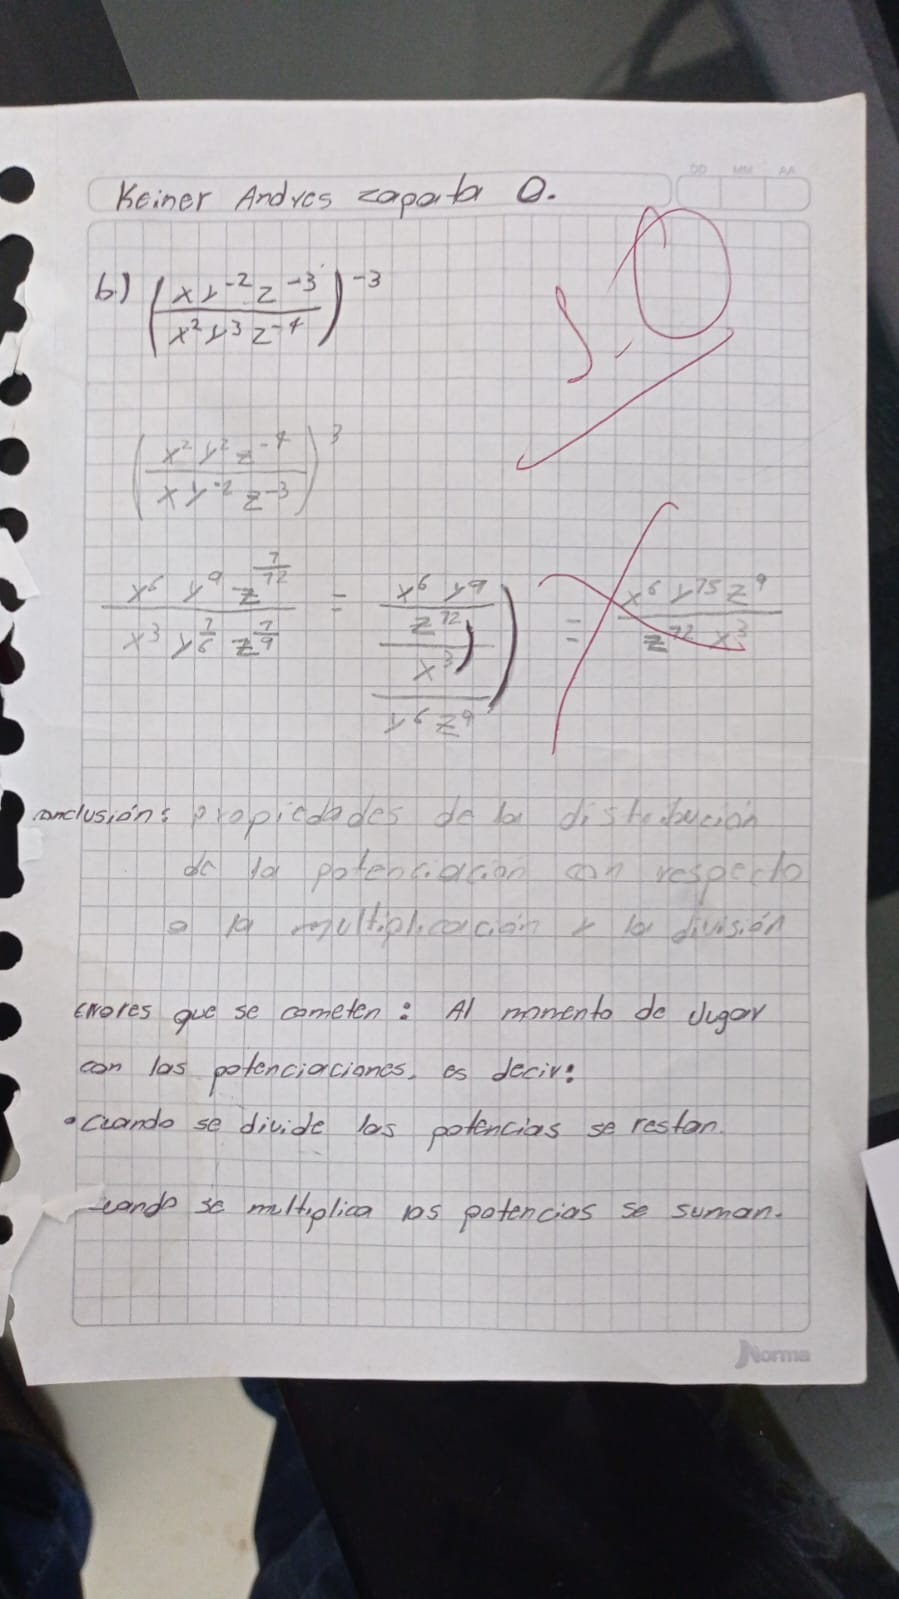 DD MM AA
Keiner Andres Zapata O.
b.) (xy⁻²z⁻³ / x²y³z⁻⁴)⁻³
5.0
(x²y²z⁻⁴ / xy⁻²z⁻³)³
x⁶ y⁹ z^(1/12) / x³ y^(1/6) z^(1/9) = ((x⁶ y⁹ / z¹²) / (x³ / y⁶ z⁹)) = x⁶ y¹⁵ z⁹ / z¹² x³
onclusión: propiedades de la distribución
de la potenciación con respecto
a la multiplicación y la división
Errores que se cometen: Al momento de Jugar
con las potenciaciones. es decir:
• Cuando se divide las potencias se restan.
uando se multiplica las potencias se suman.
Norma